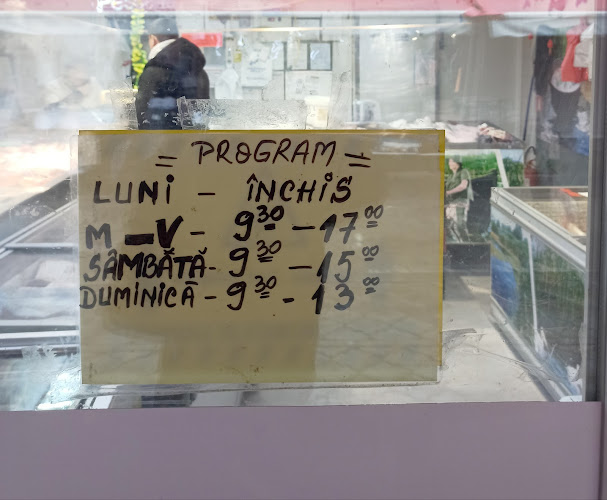 = PROGRAM =
LUNI - ÎNCHIS
M - V - 9³⁰ - 17⁰⁰
SÂMBĂTĂ - 9³⁰ - 15⁰⁰
DUMINICĂ - 9³⁰ - 13⁰⁰